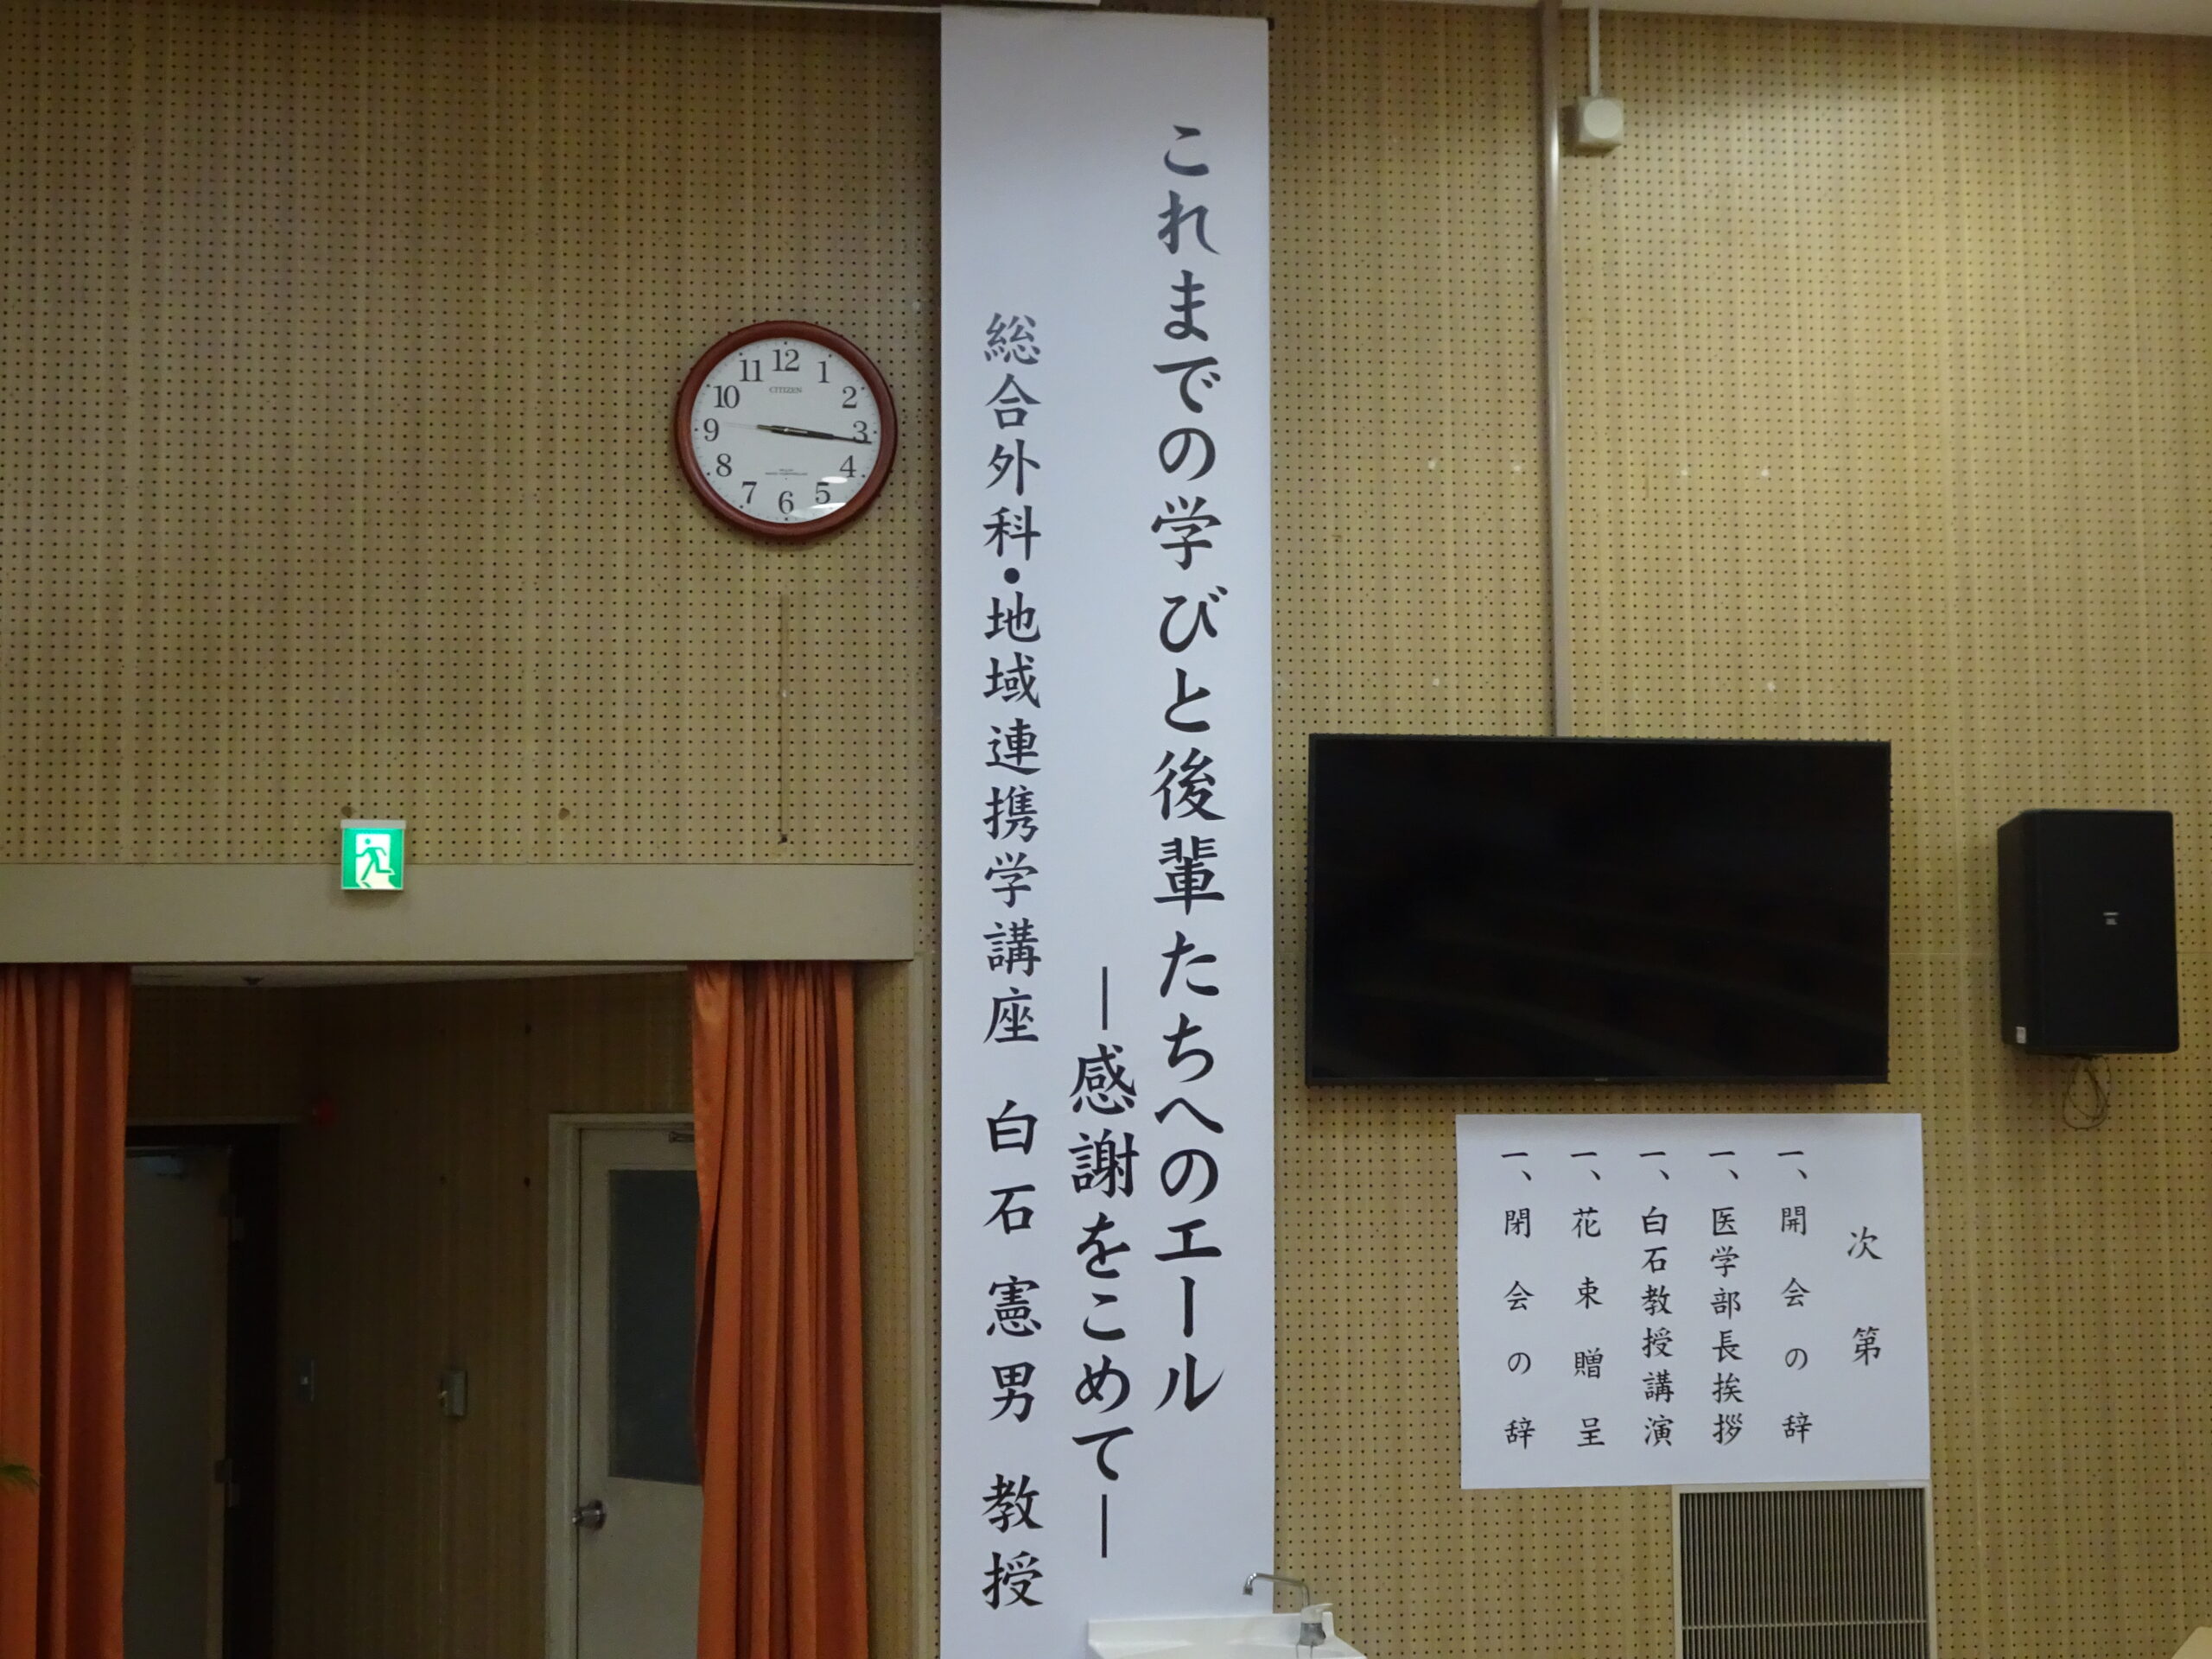 これまでの学びと後輩たちへのエール
―感謝をこめて―
総合外科・地域連携学講座 白石 憲男 教授
次第
一、開会の辞
一、医学部長挨拶
一、白石教授講演
一、花束贈呈
一、閉会の辞
12
1
2
3
4
5
6
7
8
9
10
11
CITIZEN